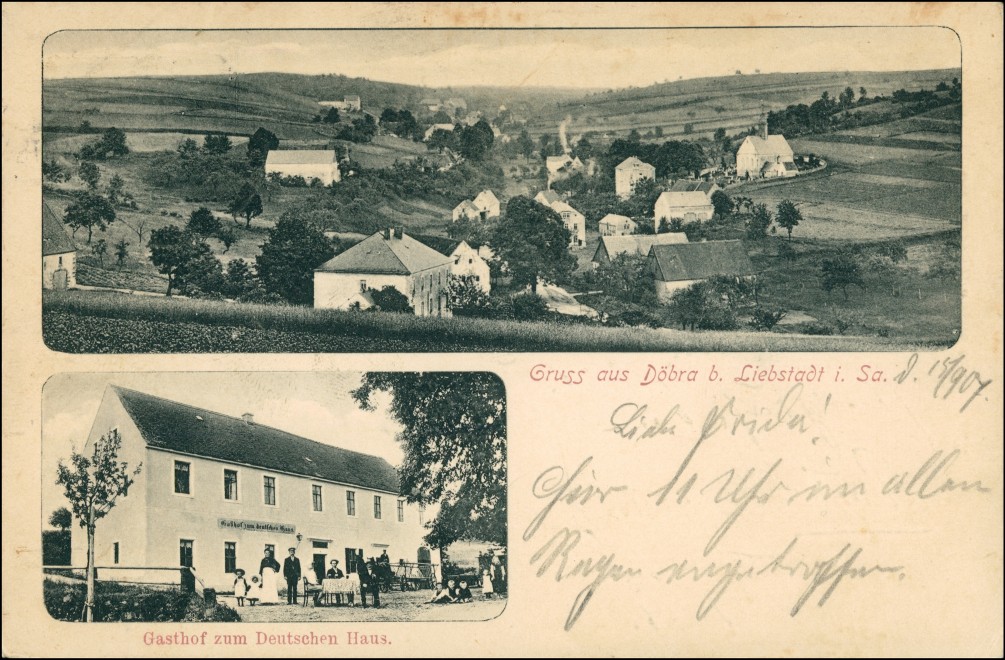 Gruss aus Döbra b. Liebstadt i. Sa. d. 15/9 07.
Liebe Frida!
Hier 11 Uhr im allen
Regen eingetroffen.
Gasthof zum deutschen Haus
Gasthof zum Deutschen Haus.